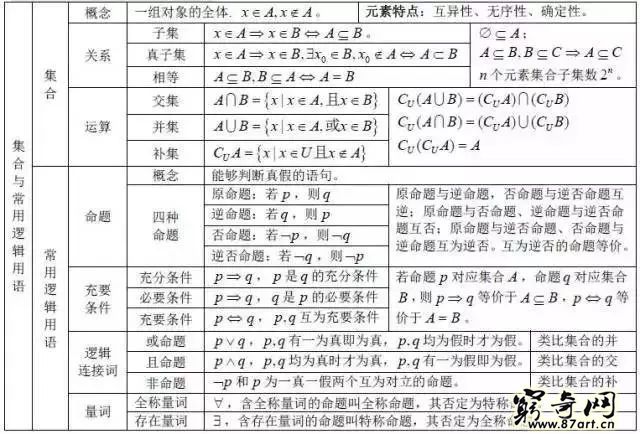 集合与常用逻辑用语
集合
概念
一组对象的全体. x∈A, x∉A。
元素特点：互异性、无序性、确定性。
关系
子集
x∈A⇒x∈B⇔A⊆B。
真子集
x∈A⇒x∈B,∃x₀∈B,x₀∉A⇔A⊂B
相等
A⊆B,B⊆A⇔A=B
∅⊆A；
A⊆B,B⊆C⇒A⊆C
n个元素集合子集数2ⁿ。
运算
交集
A⋂B={x|x∈A,且x∈B}
并集
A⋃B={x|x∈A,或x∈B}
补集
C_U A={x|x∈U且x∉A}
C_U(A⋃B)=(C_U A)⋂(C_U B)
C_U(A⋂B)=(C_U A)⋃(C_U B)
C_U(C_U A)=A
常用逻辑用语
命题
概念
能够判断真假的语句。
四种
命题
原命题：若p，则q
逆命题：若q，则p
否命题：若¬p，则¬q
逆否命题：若¬q，则¬p
原命题与逆命题，否命题与逆否命题互
逆；原命题与否命题、逆命题与逆否命
题互否；原命题与逆否命题、否命题与
逆命题互为逆否。互为逆否的命题等价。
充要
条件
充分条件
p⇒q，p是q的充分条件
必要条件
p⇒q，q是p的必要条件
充要条件
p⇔q，p,q互为充要条件
若命题p对应集合A，命题q对应集合
B，则p⇒q等价于A⊆B，p⇔q等
价于A=B。
逻辑
连接词
或命题
p∨q，p,q有一为真即为真，p,q均为假时才为假。
类比集合的并
且命题
p∧q，p,q均为真时才为真，p,q有一为假即为假。
类比集合的交
非命题
¬p和p为一真一假两个互为对立的命题。
类比集合的补
量词
全称量词
∀，含全称量词的命题叫全称命题，其否定为特称
存在量词
∃，含存在量词的命题叫特称命题，其否定为全称
穷奇网
www.87art.cn